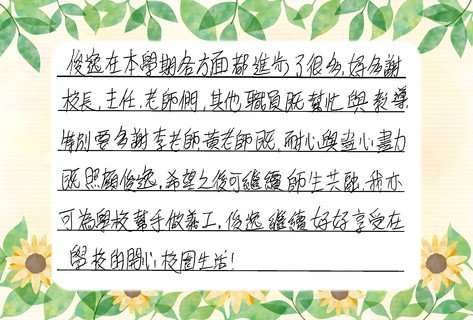 俊逸在本學期各方面都進步了很多,好多謝
校長,主任,老師們,其他職員既幫忙與教導
特別要多謝李老師,黃老師既,耐心與盡心盡力
既照顧俊逸,希望之後可繼續師生共融,我亦
可為學校幫手做義工,俊逸繼續好好享受在
學校的開心校園生活!